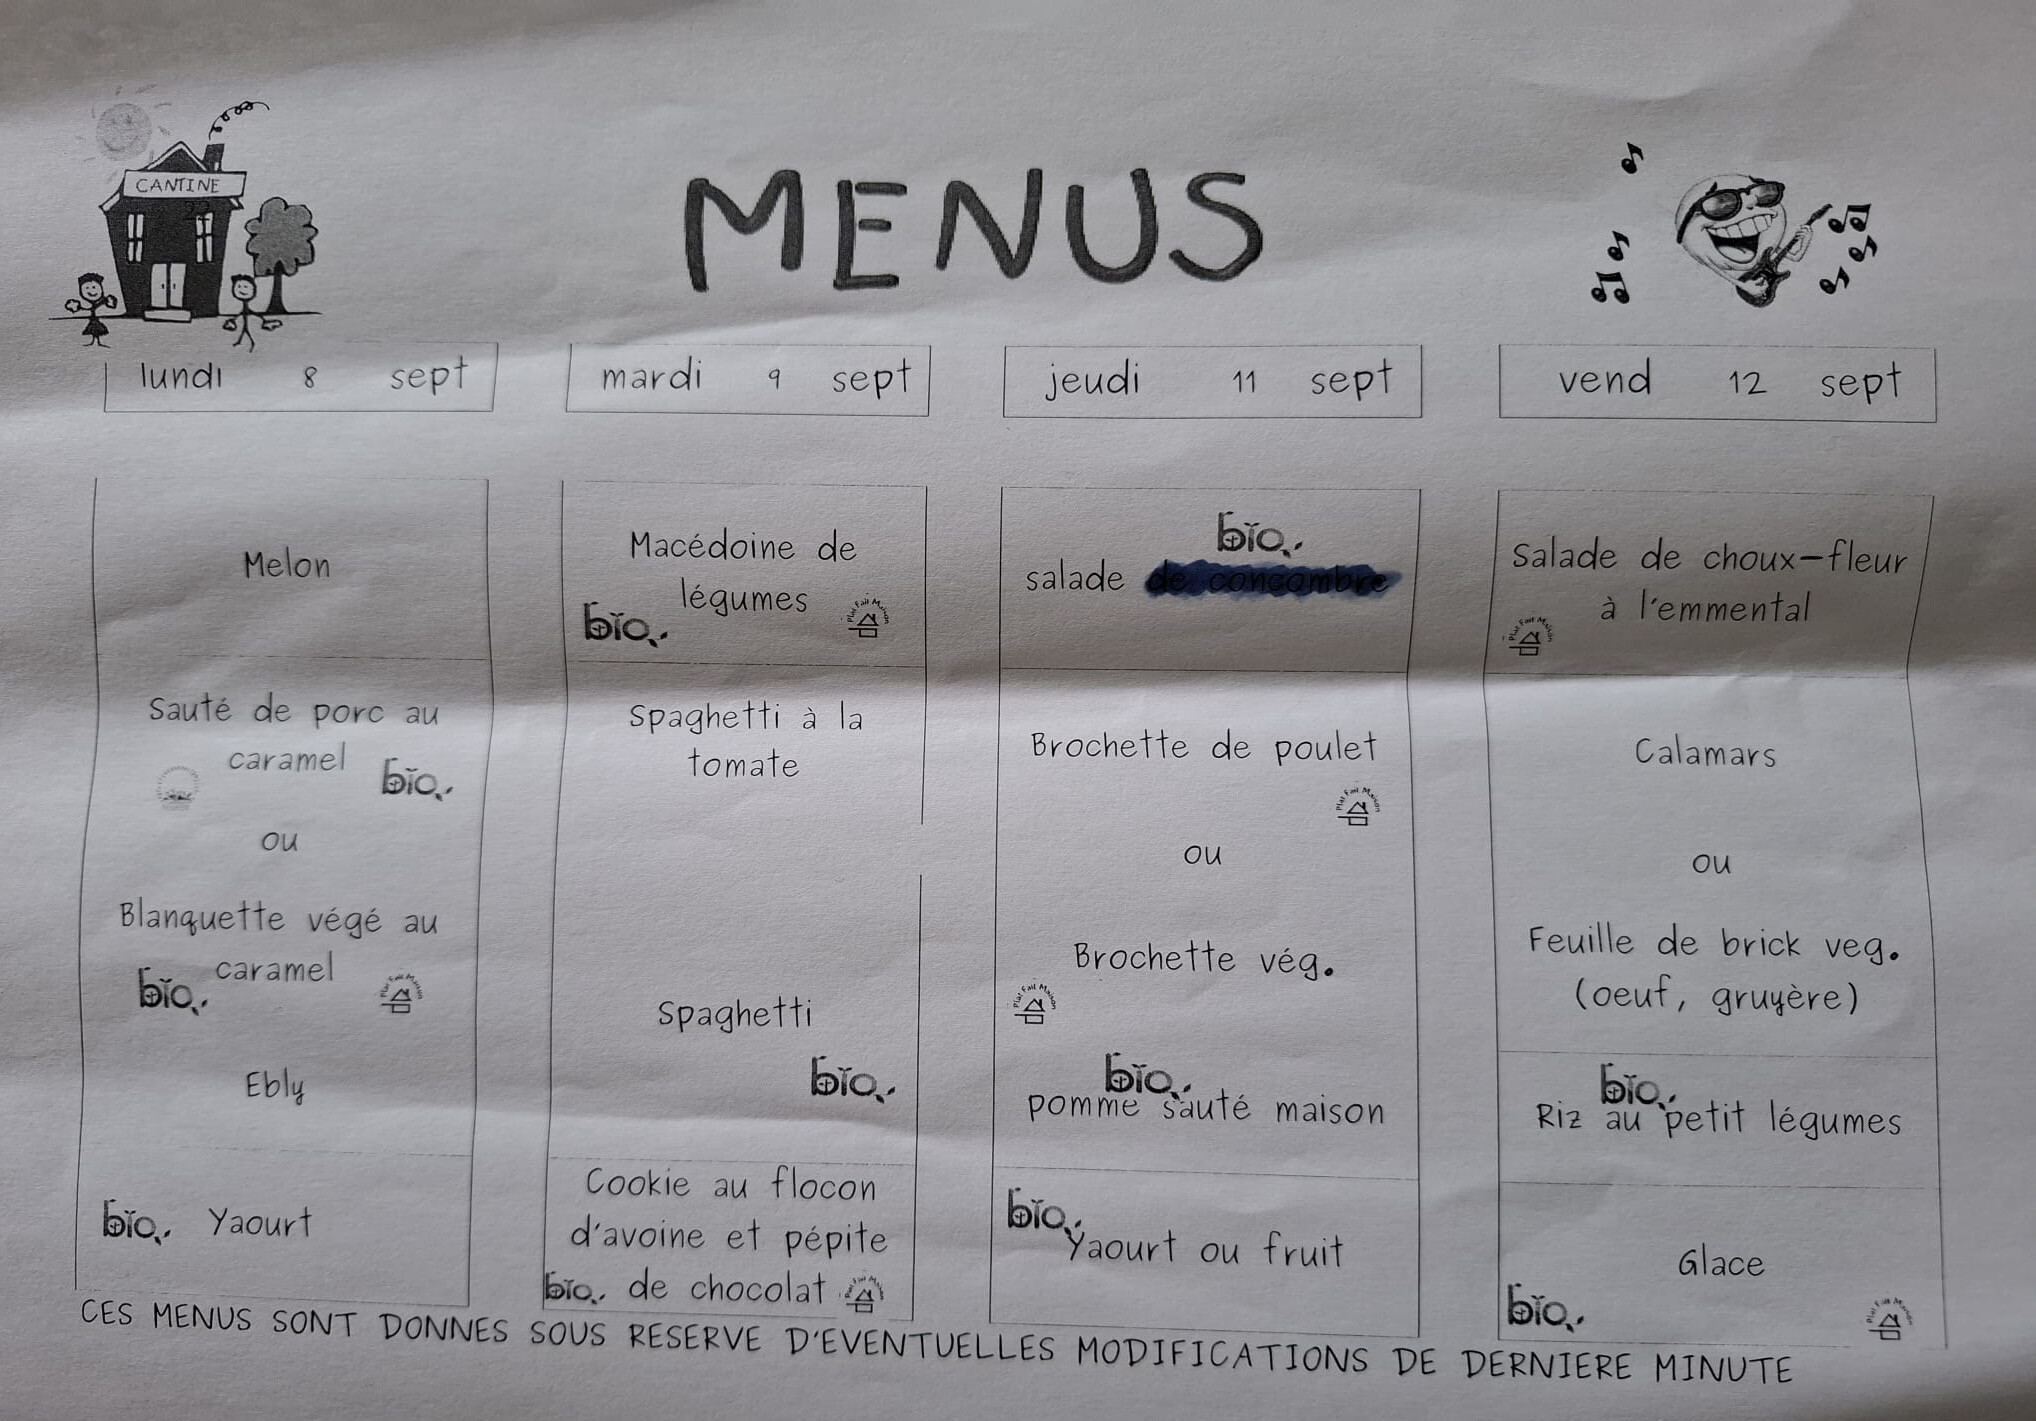 CANTINE
22
MENUS
lundi 8 sept
Melon
Sauté de porc au
caramel
bio
ou
Blanquette végé au
caramel
bio
Plat Fait Maison
Ebly
bio Yaourt
mardi 9 sept
Macédoine de
légumes
bio
Plat Fait Maison
Spaghetti à la
tomate
Spaghetti
bio
Cookie au flocon
d'avoine et pépite
bio de chocolat
Plat Fait Maison
jeudi 11 sept
bio
salade de concombre
Brochette de poulet
Plat Fait Maison
ou
Brochette vég.
Plat Fait Maison
bio
pomme sauté maison
bio
Yaourt ou fruit
vend 12 sept
Salade de choux-fleur
à l'emmental
Plat Fait Maison
Calamars
ou
Feuille de brick veg.
(oeuf, gruyère)
bio
Riz au petit légumes
Glace
bio
Plat Fait Maison
CES MENUS SONT DONNES SOUS RESERVE D'EVENTUELLES MODIFICATIONS DE DERNIERE MINUTE